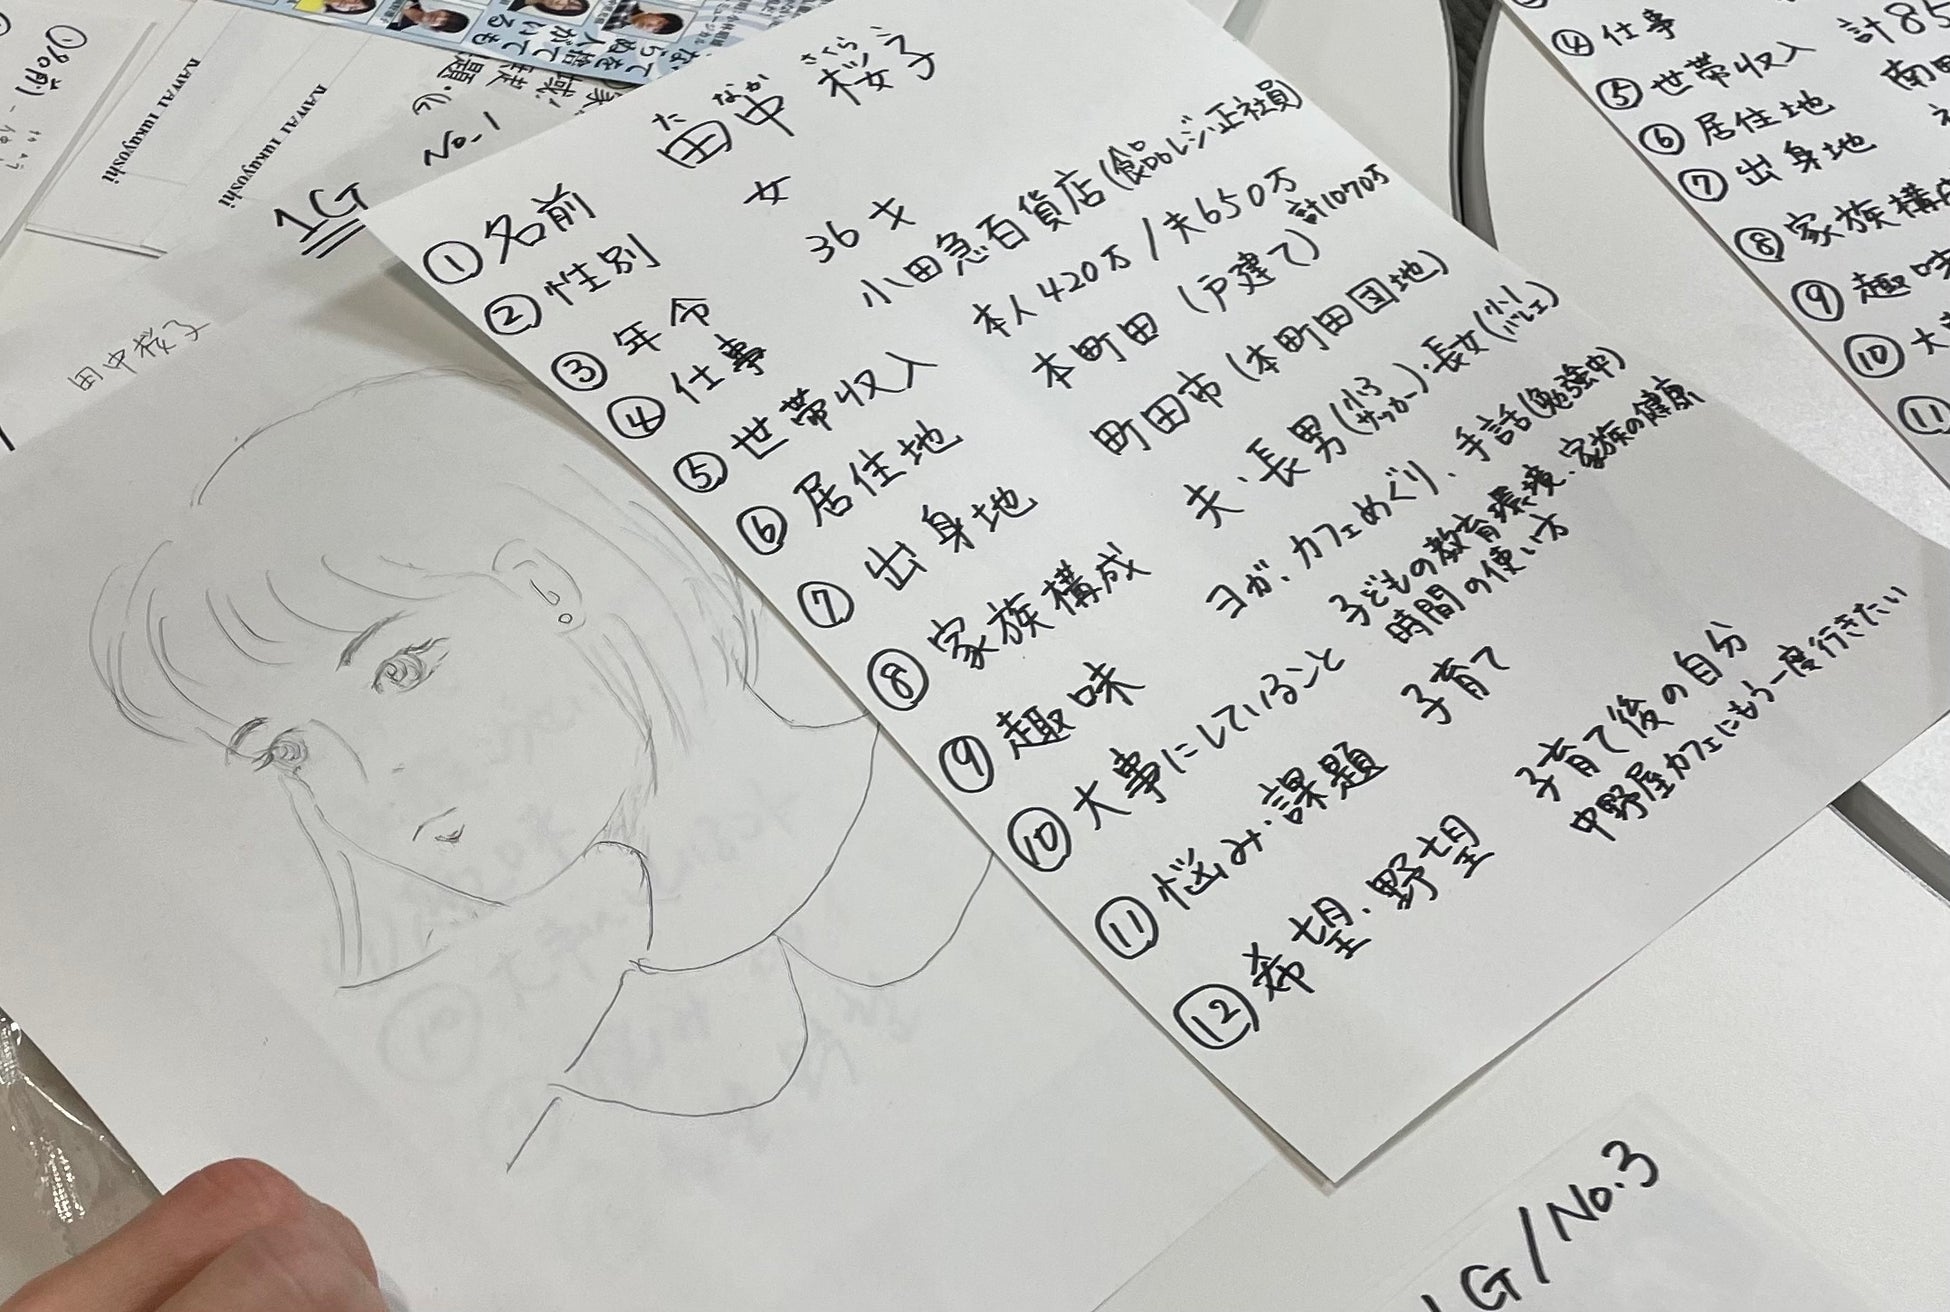 1G
No-1
田中桜子
KAWAI Tukuyoshi
KAWAI Tukuyoshi
①名前 田中 桜子
たなか さくら
②性別 女
③年令 36才
④仕事 小田急百貨店(食品レジ・正社員)
⑤世帯収入 本人420万/夫650万
計1070万
⑥居住地 本町田(戸建て)
⑦出身地 町田市(本町田団地)
⑧家族構成 夫・長男(小3サッカー)・長女(小1バレエ)
⑨趣味 ヨガ、カフェめぐり、手話(勉強中)
⑩大事にしていること 子どもの教育環境、家族の健康
時間の使い方
⑪悩み・課題 子育て
⑫希望・野望 子育て後の自分
中野屋カフェにもう一度行きたい
④仕事
⑤世帯収入 計85
⑥居住地 南
⑦出身地
⑧家族構成
⑨趣味
⑩大
⑪
1G/No.3